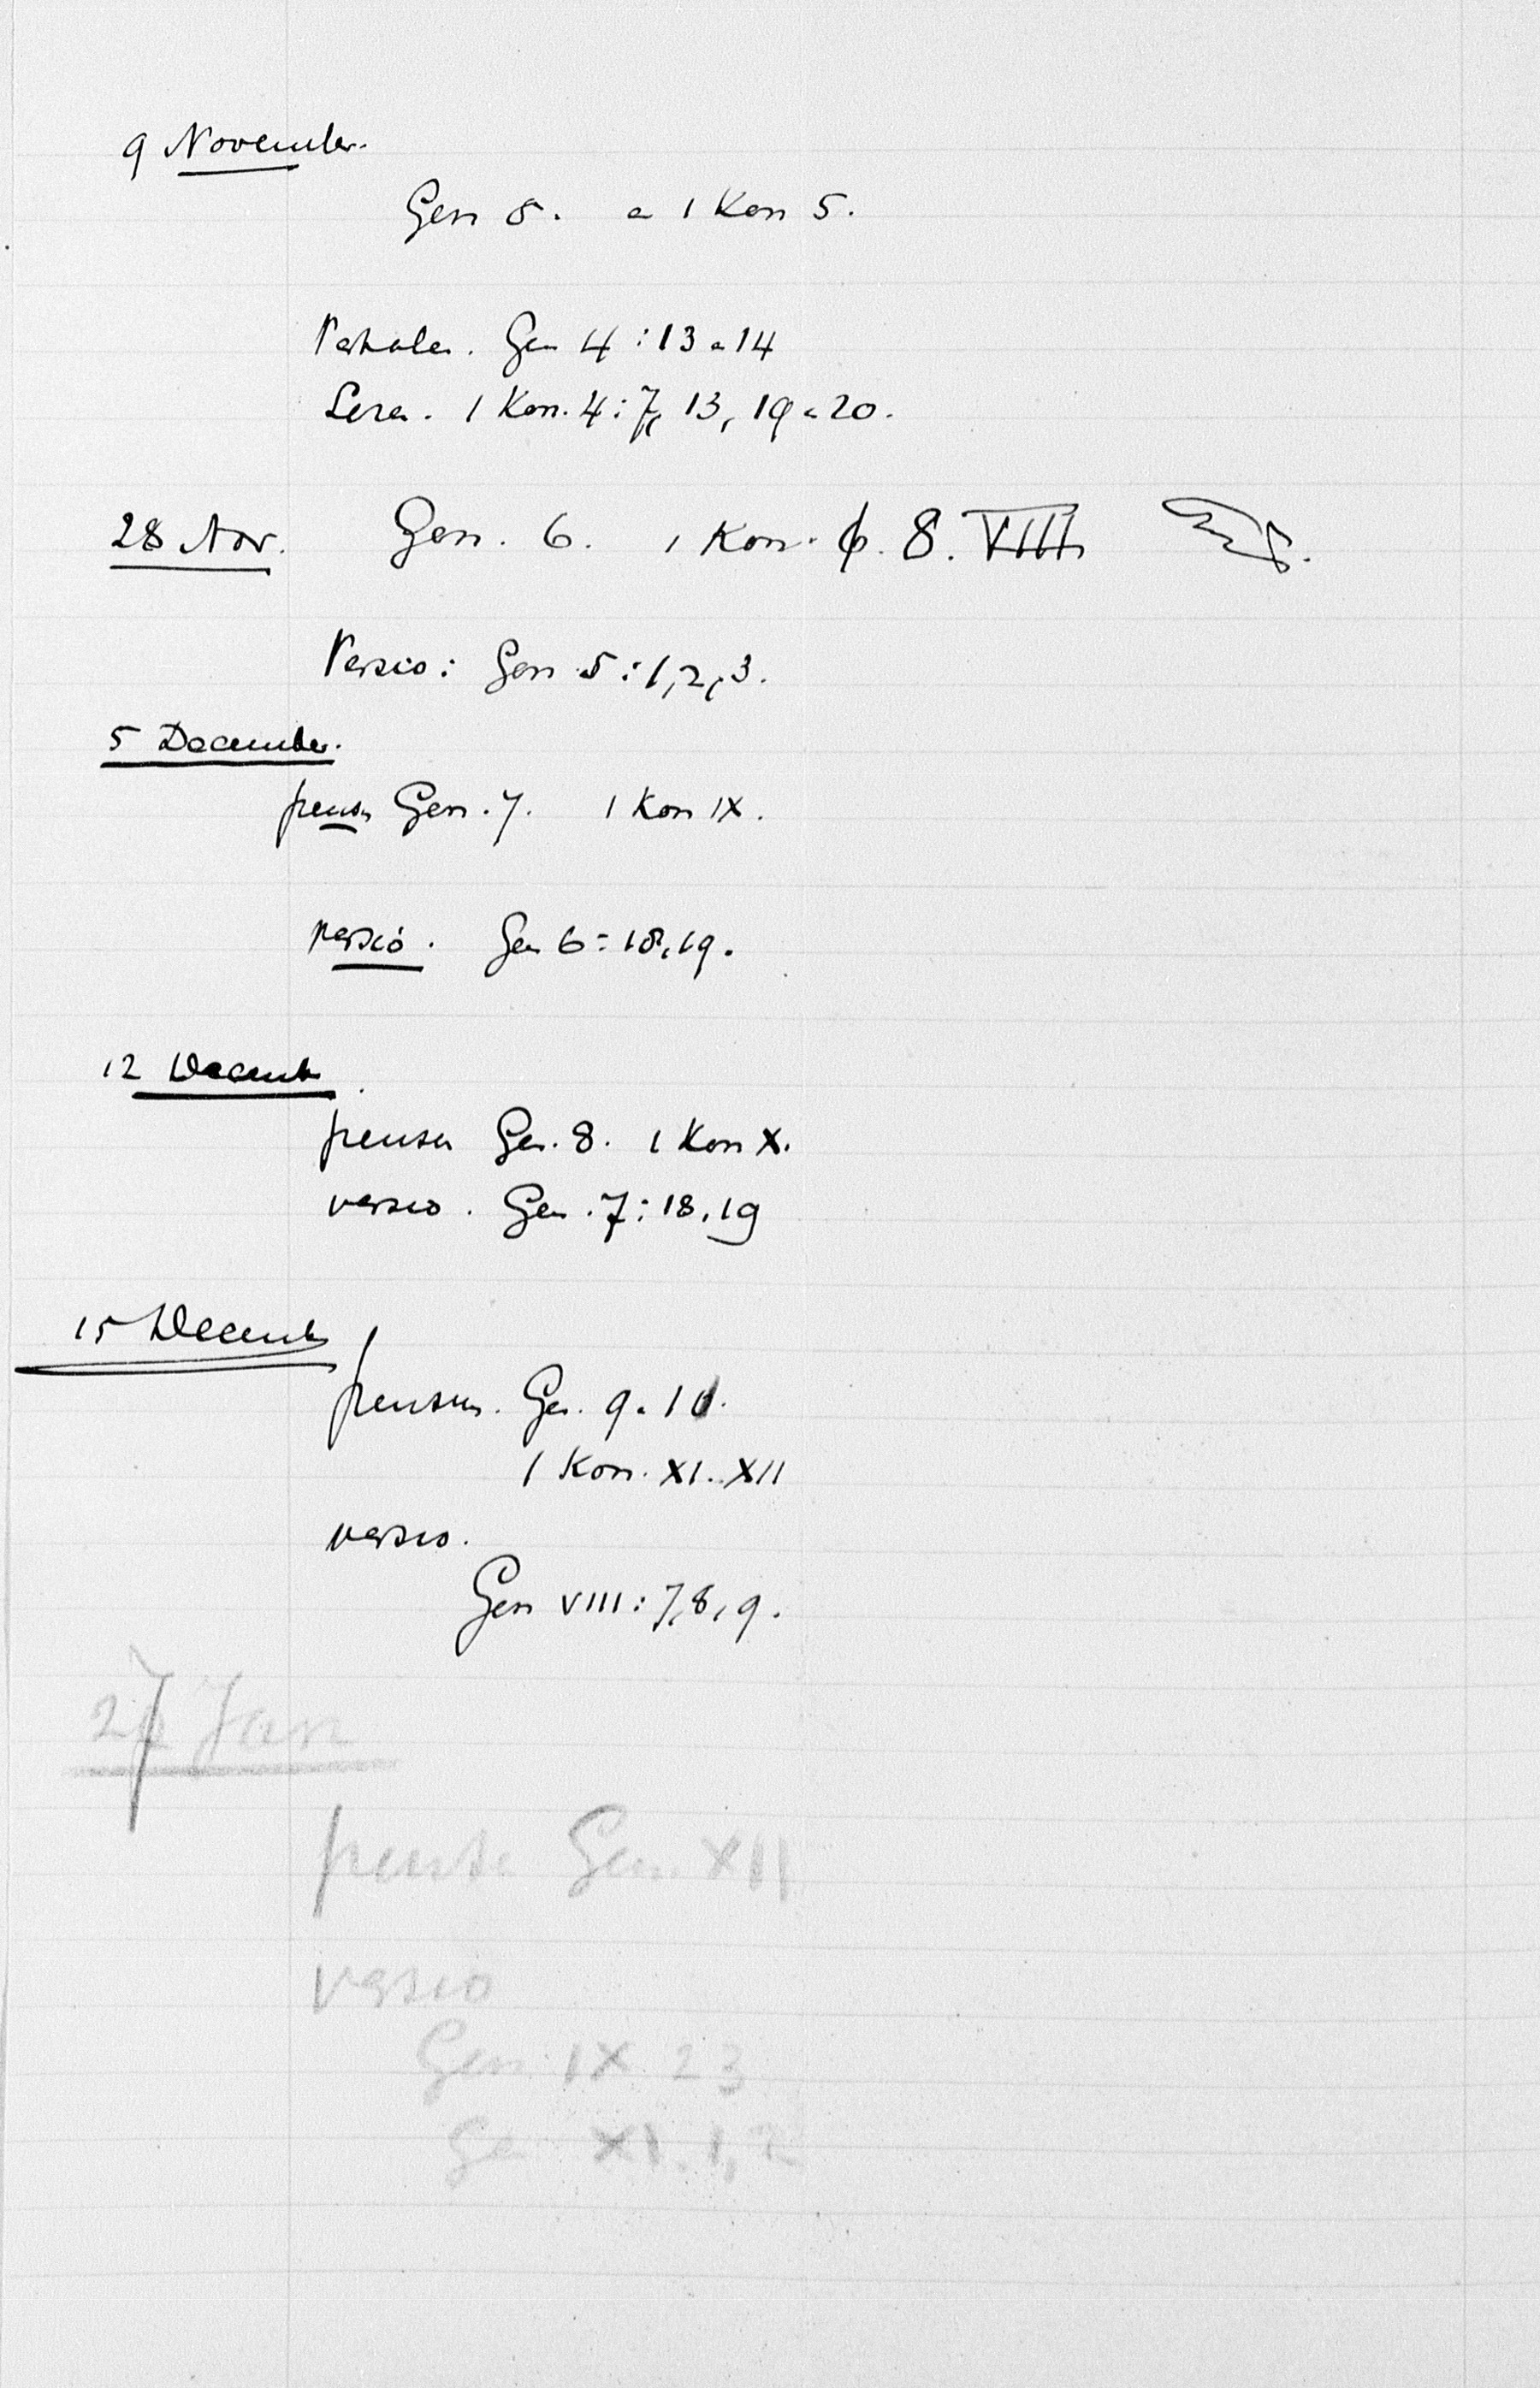 9 November.
Gen 5. a 1 Kon 5.
Vertalen. Gen 4:13 a 14
Leren. 1 Kon. 4:7, 13, 19 a 20.
28 Nov. Gen. 6. 1 Kon. 8. VIII
Versio: Gen 5:1,2,3.
5 December.
pensum Gen. 7. 1 Kon IX.
versio. Gen 6:18,19.
12 Decemb
pensum Gen. 8. 1 Kon X.
versio. Gen. 7:18,19
15 Decemb
pensum. Gen. 9 a 10.
1 Kon. XI. XII
versio.
Gen VIII:7,8,9.
27 Jan
pensum Gen. XII
versio
Gen. IX 23
Gen XI.1,2